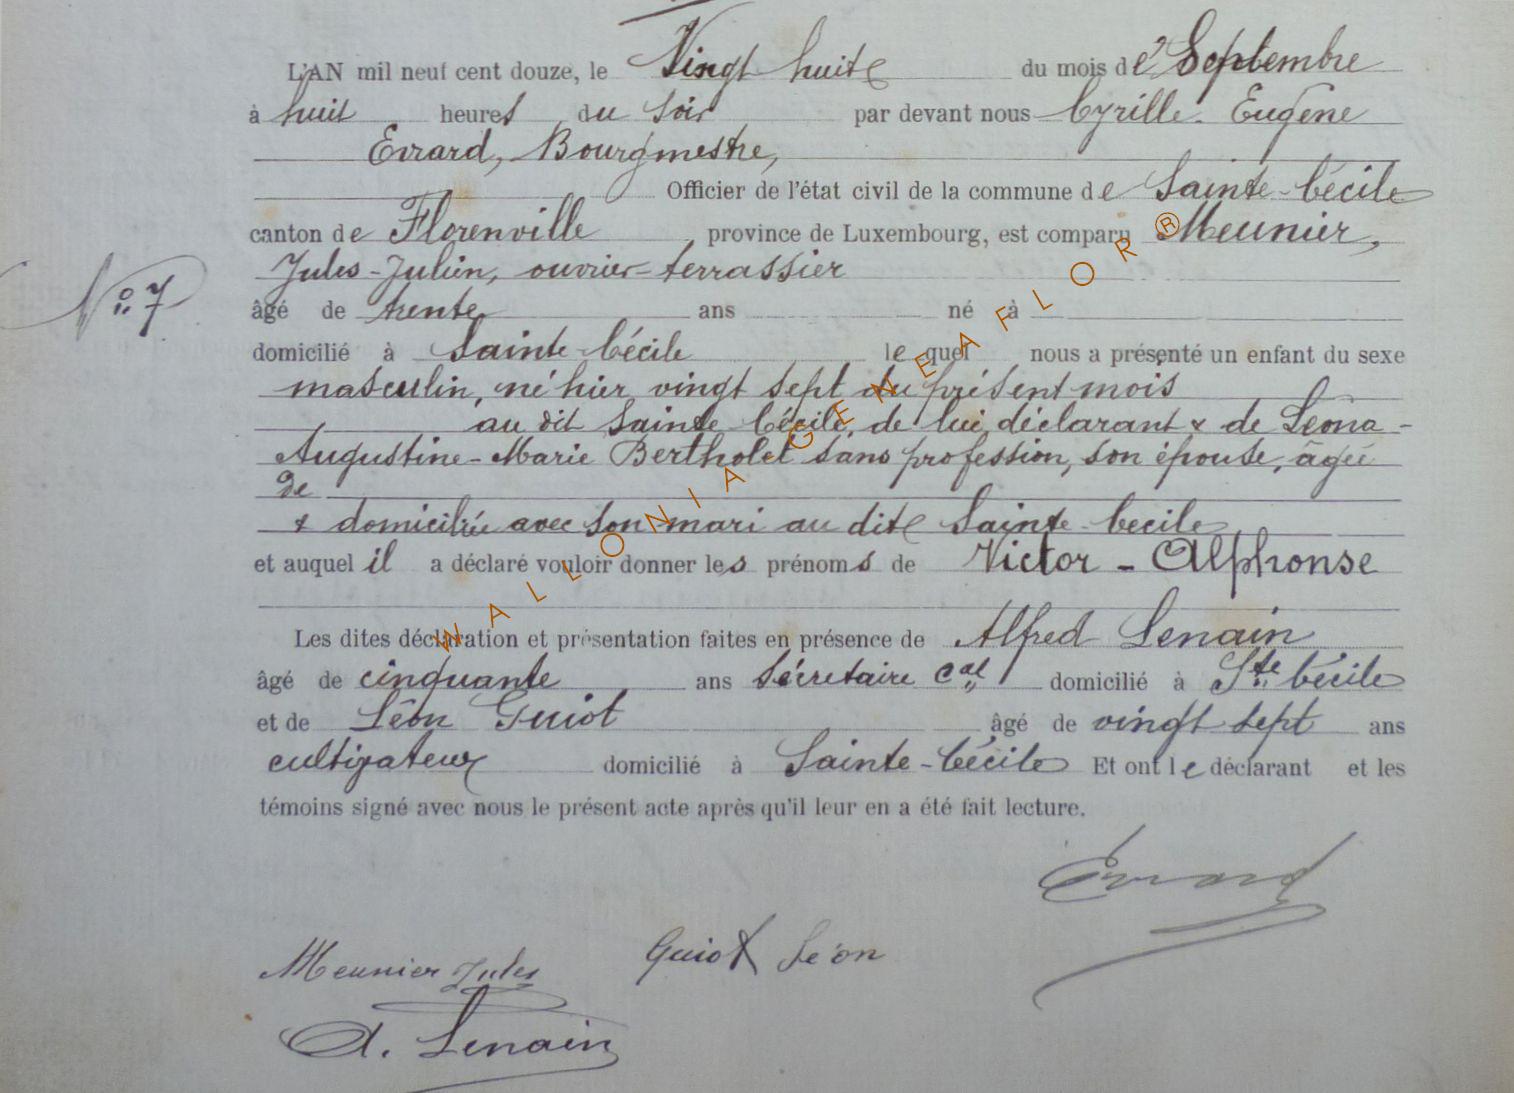 L'AN mil neuf cent douze, le Vingt huit du mois de Septembre
à huit heures du soir par devant nous Cyrille Eugène
Evrard, Bourgmestre,
Officier de l'état civil de la commune de Sainte-Cécile
canton de Florenville, province de Luxembourg, est comparu Meunier,
Jules-Julien, ouvrier-terrassier
N° 7
âgé de trente ans né à
domicilié à Sainte-Cécile lequel nous a présenté un enfant du sexe
masculin, né hier vingt sept du présent mois
au dit Sainte Cécile, de lui déclarant & de Léona-
Augustine-Marie Bertholet sans profession, son épouse, âgée
de
& domiciliée avec son mari au dit Sainte-Cecile
et auquel il a déclaré vouloir donner les prénoms de Victor-Alphonse
Les dites déclaration et présentation faites en présence de Alfred Lenain
âgé de cinquante ans Sécretaire cal domicilié à Ste Cécile
et de Léon Guiot âgé de vingt sept ans
cultivateur domicilié à Sainte-Cécile Et ont le déclarant et les
témoins signé avec nous le présent acte après qu'il leur en a été fait lecture.
Evrard
Meunier Jules Guiot Léon
A. Lenain
WALLONIA-GENEAFLOR®